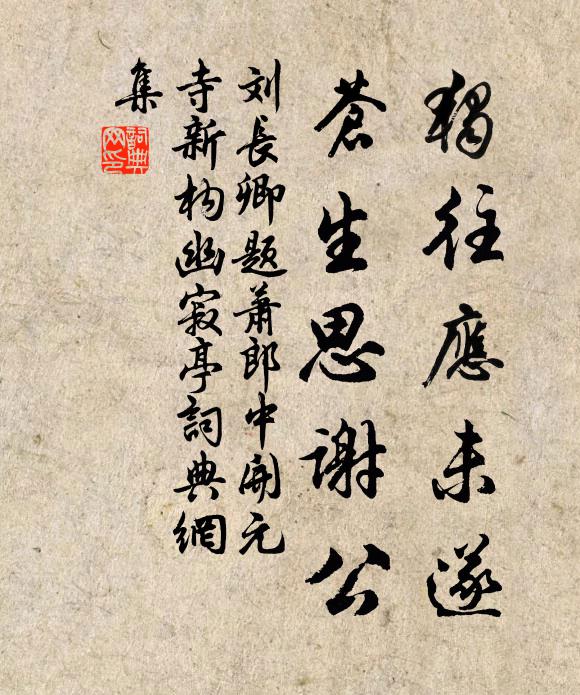 獨往應未遂
蒼生思謝公
刘長卿題蕭郎中開元
寺新构幽寂亭詞典網
集
詞典
网印